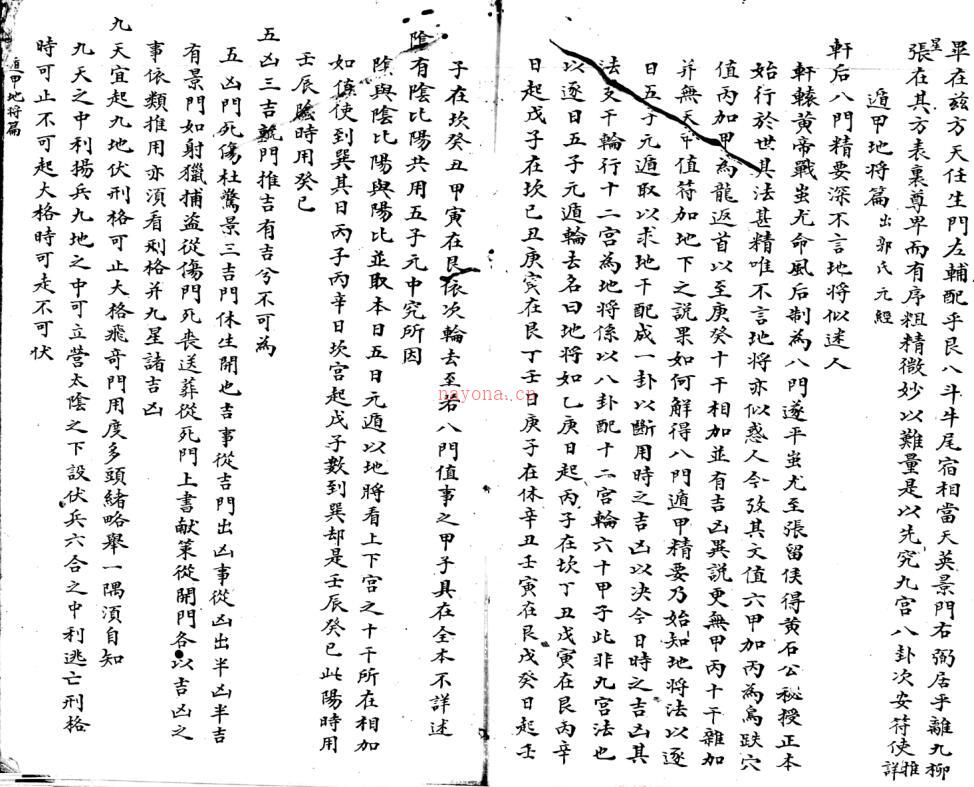 畢在兹方天任生門左輔配乎艮八斗牛尾宿相當天英景門右弼居乎離九柳
星張在其方表裏尊卑而有序粗精微妙以難量是以先究九宫八卦次安符使推詳
遁甲地将篇 出郭氏元經
軒后八門精要深不言地将似迷人
軒轅黄帝戰蚩尤命風后制為八門遂平蚩尤至張留侯得黄石公秘授正本
始行於世其法甚精唯不言地将亦似惑人今攷其文值六甲加丙為鳥跌穴
值丙加甲為龍返首以至庚癸十干相加並有吉凶異説更無甲丙十干雜加
并無天甲值符加地下之説果如何解得八門遁甲精要乃始知地将法以逐
日五子元遁取以求地干配成一卦以斷用時之吉凶以决今日時之吉凶其
法支干輪行十二宫為地将係以八卦配十二宫輪六十甲子此非九宫法也
以逐日五子元遁輪去名曰地将如乙庚日起丙子在坎丁丑戊寅在艮丙辛
日起戊子在坎已丑庚寅在艮丁壬日庚子在休辛丑壬寅在艮戊癸日起壬
子在坎癸丑甲寅在艮依次輪去至若八門值事之甲子具在全本不詳述
陰有陰比陽共用五子元中究所因
陰與陰比陽與陽比並取本日五日元遁以地將看上下宫之十干所在相加
如值使到巽其日丙子丙辛日坎宫起戊子數到巽却是壬辰癸巳此陽時用
壬辰陰時用癸巳
五凶三吉輗門推吉有吉兮不可為
五凶門死傷杜驚景三吉門休生開也吉事從吉門出凶事從凶出半凶半吉
有景門如射獵捕盗從傷門死喪送葬從死門上書献策從開門各以吉凶之
事依類推用亦須看刑格并九星諸吉凶
九天宜起九地伏刑格可止大格飛奇門用度多頭緒略舉一隅須自知
九天之中利揚兵九地之中可立营太陰之下設伏兵六合之中利逃亡刑格
時可止不可起大格時可走不可伏
遁甲地将篇
nayona.cn